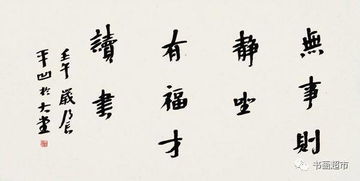 無事則
静坐
有福才
讀書
壬午歲首
平凹於大堂
书画超市